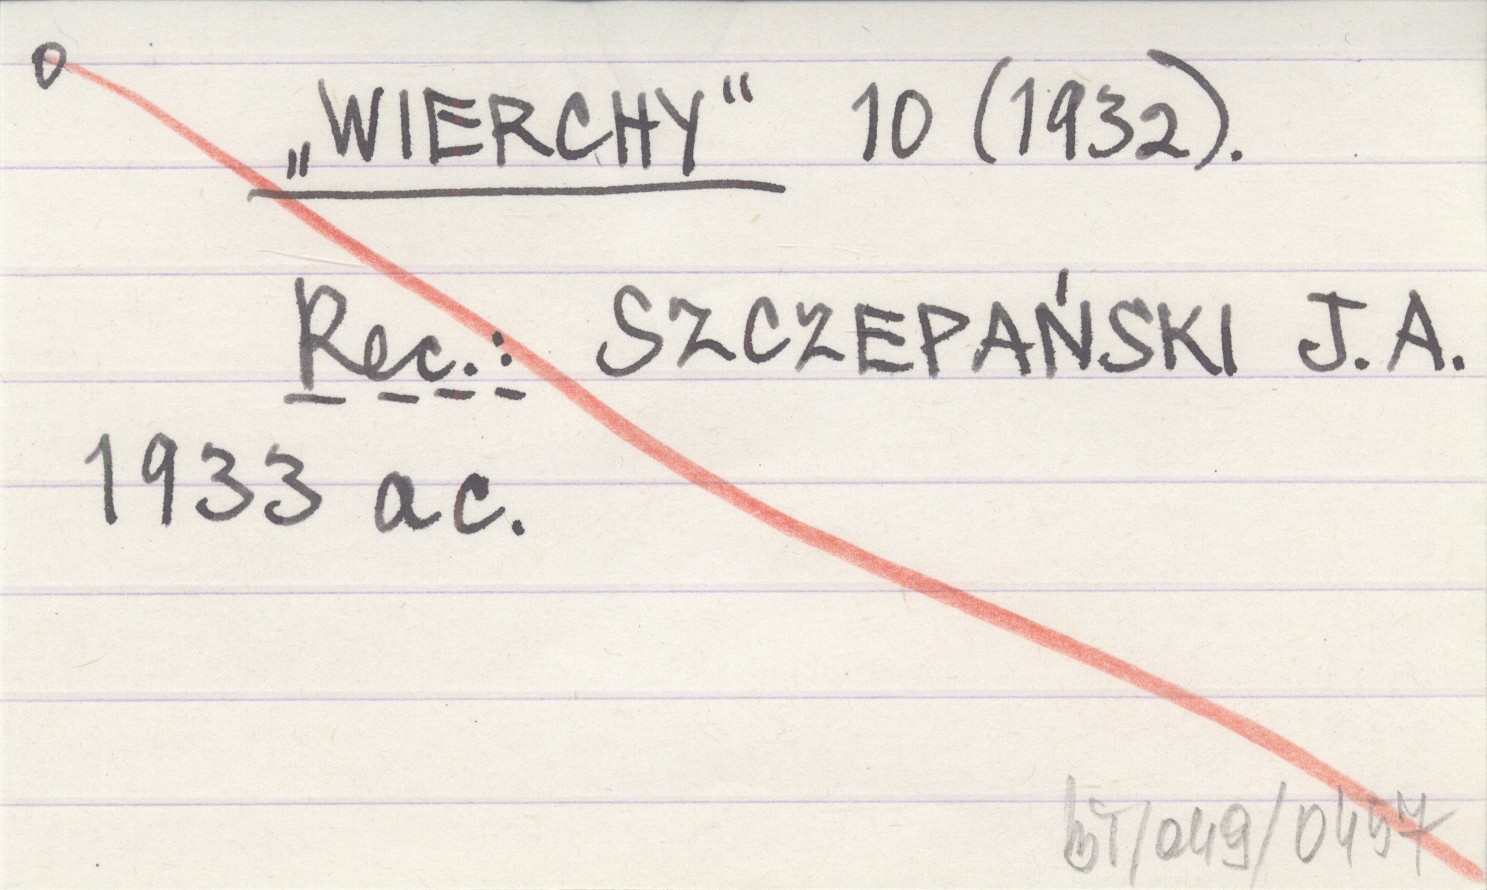 0
„WIERCHY“ 10 (1932).
Rec.: SZCZEPAŃSKI J.A.
1933 ac.
bT/049/0457